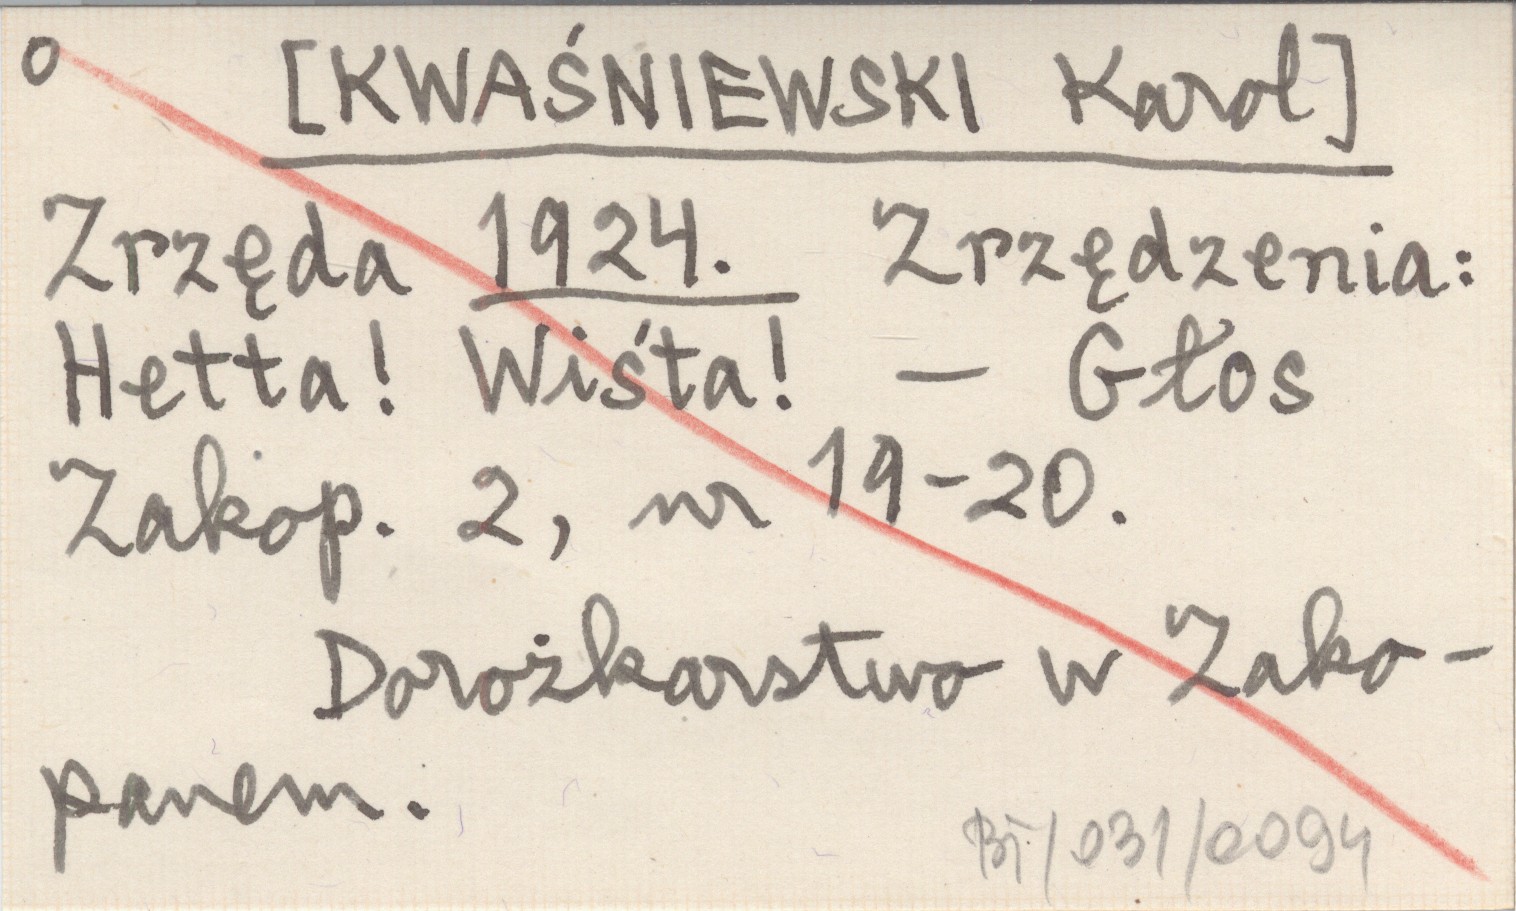 o [KWAŚNIEWSKI Karol]
Zrzęda 1924. Zrzędzenia:
Hetta! Wiśta! — Głos
Zakop. 2, nr 19-20.
Dorożkarstwo w Zako-
panem.
BT/031/0094